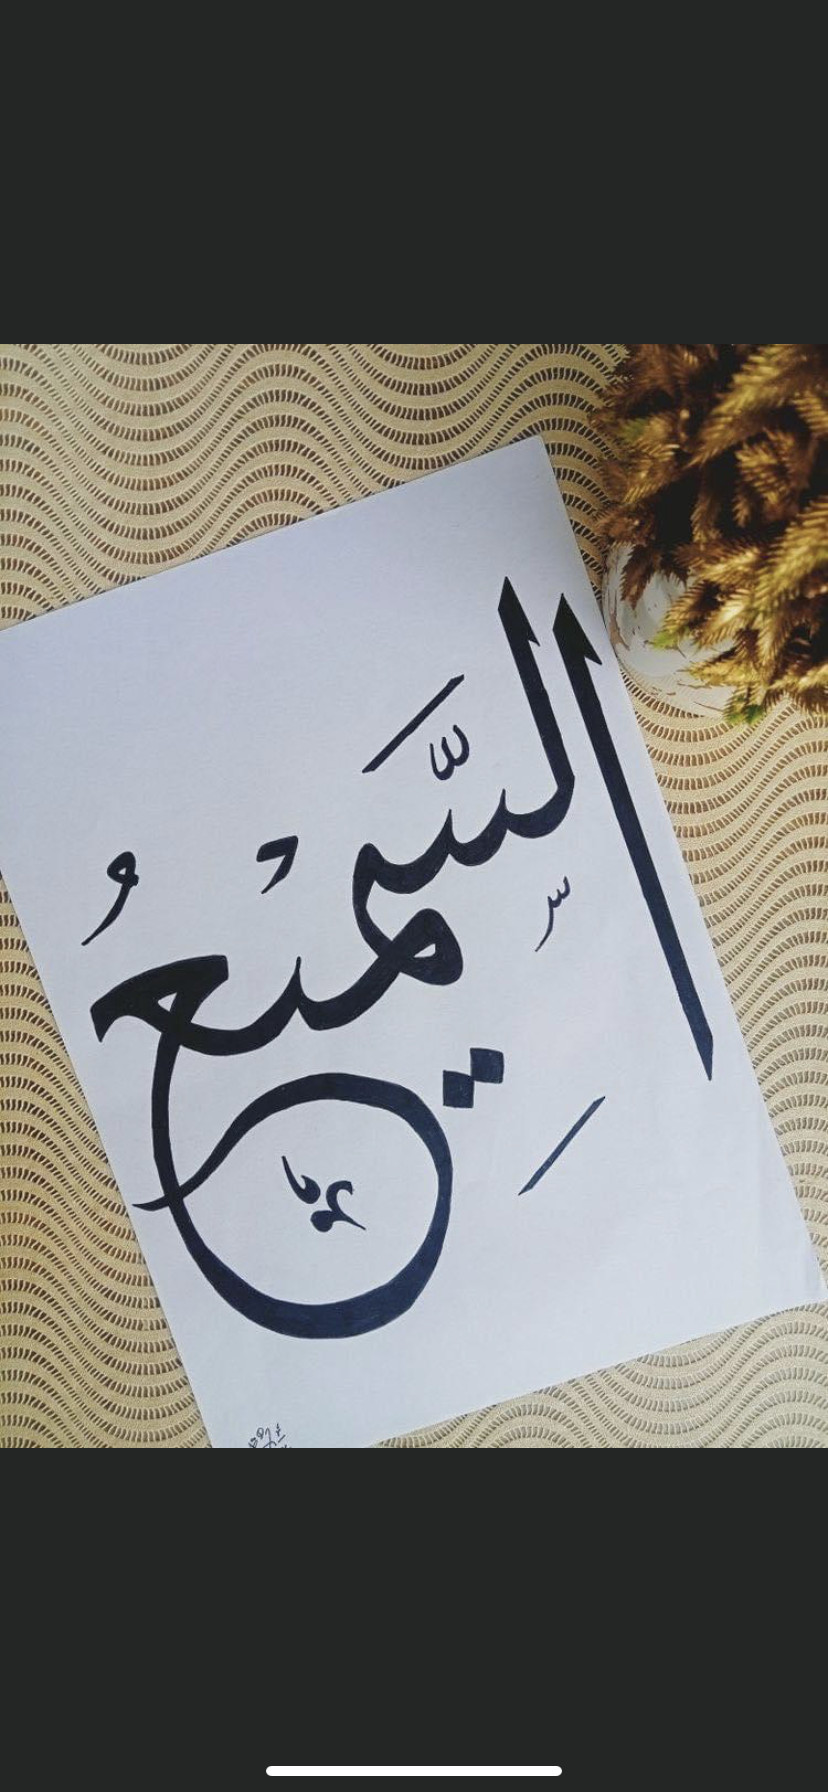 السَّمِيْعُ